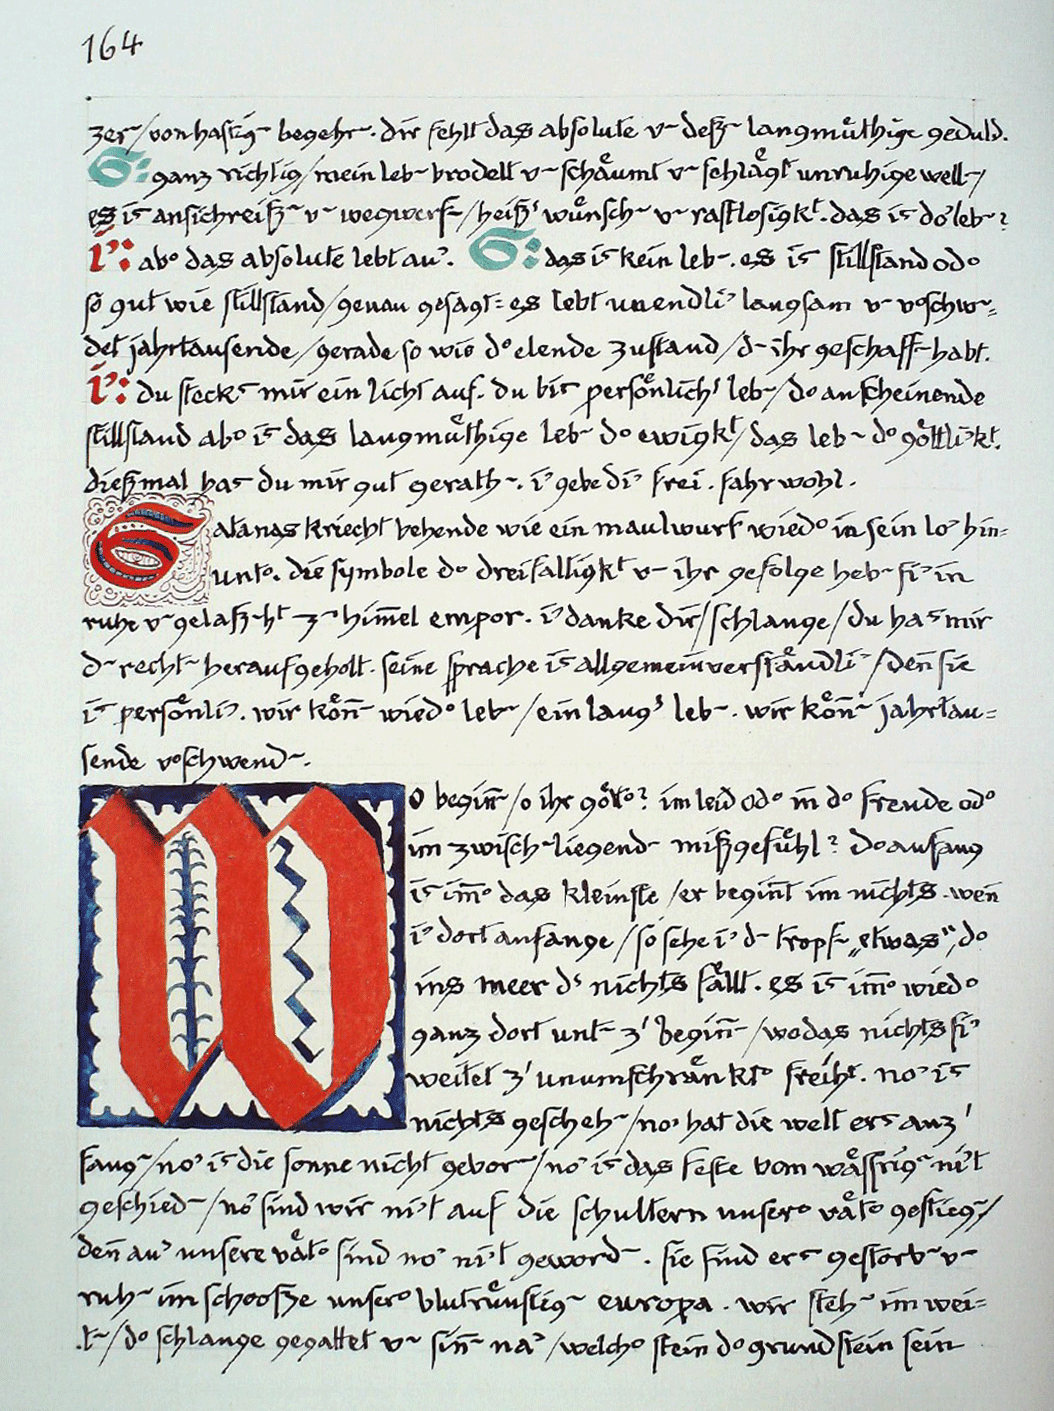 164
zer / von hastig~ begehr~. dir fehlt das absolute u~ deß~ langmüthige geduld.
S: ganz richtig / mein leb~ brodelt u~ schäumt u~ schlägt unruhige well~ /
es is’ ansichreiß~ u~ wegwerf~ / heiß’ wünsch~ u~ rastlosigk’t. das is’ d° leb~?
I’: ab° das absolute lebt au’. S: das is’ kein leb~. es is’ stillstand od°
so gut wie stillstand / genau gesagt: es lebt unendli’ langsam u~ v°schw~=
det jahrtausende / gerade so wie d° elende zustand / d~ ihr geschaff~ habt.
I’: du steck’s mir ein licht auf. du bis’ persönlich’ leb~ / d° anscheinende
stillstand ab° is’ das langmüthige leb~ d° ewigk’t / das leb~ d° göttli’k’t.
dießmal has’ du mir gut gerath~. i’ gebe di’ frei. fahrwohl.
Satanas kriecht behende wie ein maulwurf wied° in sein lo’ hin=
unt°. die symbole d° dreifalligk’t u~ ihr gefolge heb~ si’ in
ruhe u~ gelaß~h’t z~ him̄el empor. i’ danke dir / schlange / du has’ mir
d~ recht~ heraufgeholt. seine sprache is’ allgemeinverständli’ / den̄ sie
is’ persönli’. wir kön̄~ wied° leb~ / ein lang’s leb~. wir kön̄~ jahrtau=
sende v°schwend~.
Wo begin̄~ / o ihr gött°? im leid od° in d° freude od°
im zwisch~liegend~ mißgefühl? d° anfang
is’ im̄° das kleinste / er begin̄t im nichts. wen̄
i’ dort anfange / so sehe i’ d~ tropf~ „etwas“ / d°
ins meer d’s nichts fällt. es is’ im̄° wied°
ganz dort unt~ z’ begin̄~ / wo das nichts si’
weitet z’ unumschränkt° freih’t. no’ is’
nichts gescheh~ / no’ hat die welt ers’ anz’
fang~ / no’ is’ die sonne nicht gebor~ / no’ is’ das feste vom wässrig~ ni’t
geschied~ / no’ sind wir ni’t auf die schultern unser° vät° gestieg~ /
den̄ au’ unsere vät° sind no’ ni’t geword~. sie sind ers’ gestorb~ u~
ruh~ im schooße unser° blutrünstig~ europa. wir steh~ im wei=
t~ / d° schlange gegattet u~ sin̄~ na’ / welch° stein d° grundstein sein